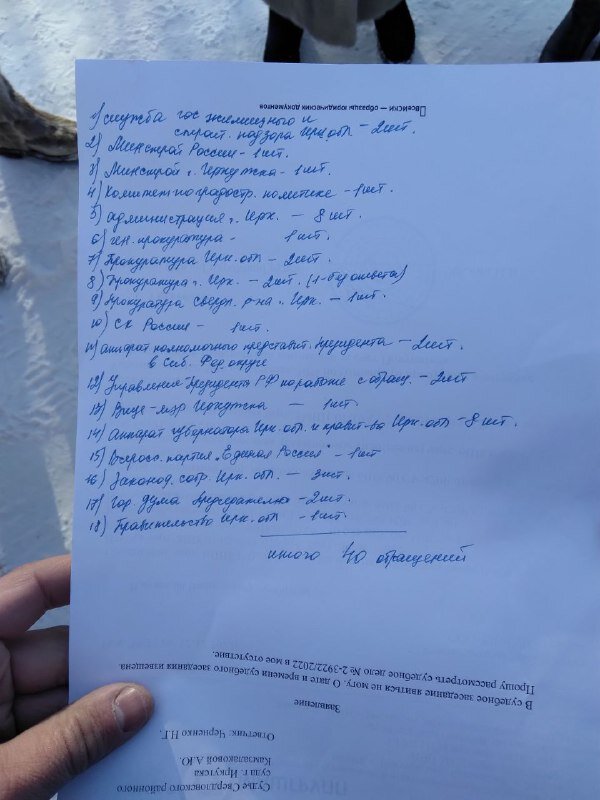 ВсеИСКИ — образцы юридических документов
1) служба гос жилищного и
строит. надзора Ирк. обл — 2 шт.
2) Минстрой России - 1 шт.
3) Минстрой г. Иркутска - 1 шт.
4) Комитет по градостр. политике - 1 шт.
5) администрация г. Ирк. — 8 шт.
6) ген. прокуратура - 1 шт.
7) Прокуратура Ирк. обл - 2 шт.
8) Прокуратура г. Ирк. - 2 шт. (1-без ответа)
9) Прокуратура свердл. р-на г. Ирк. - 1 шт.
10) СК России - 1 шт.
11) аппарат полномочного представит. Президента — 2 шт.
в Сиб. Фед. округе
12) Управление Президента РФ по работе с обращ. - 2 шт
13) Вице-мэр Иркутска — 1 шт.
14) Аппарат губернатора Ирк. обл. и правит-ва Ирк. обл - 8 шт.
15) Всеросс. партия "Единая Россия" - 1 шт
16) Законод. собр. Ирк. обл. — 3 шт.
17) Гор дума председателю - 2 шт.
18) Правительство Ирк. обл - 1 шт.
итого 40 обращений
Судье Свердловского районного
суда г. Иркутска
Камзалаковой А.Ю.
Ответчик: Черненко Н.Г.
Заявление
В судебное заседание явиться не могу. О дате и времени судебного заседания извещена.
Прошу рассмотреть судебное дело № 2-3922/2022 в мое отсутствие.